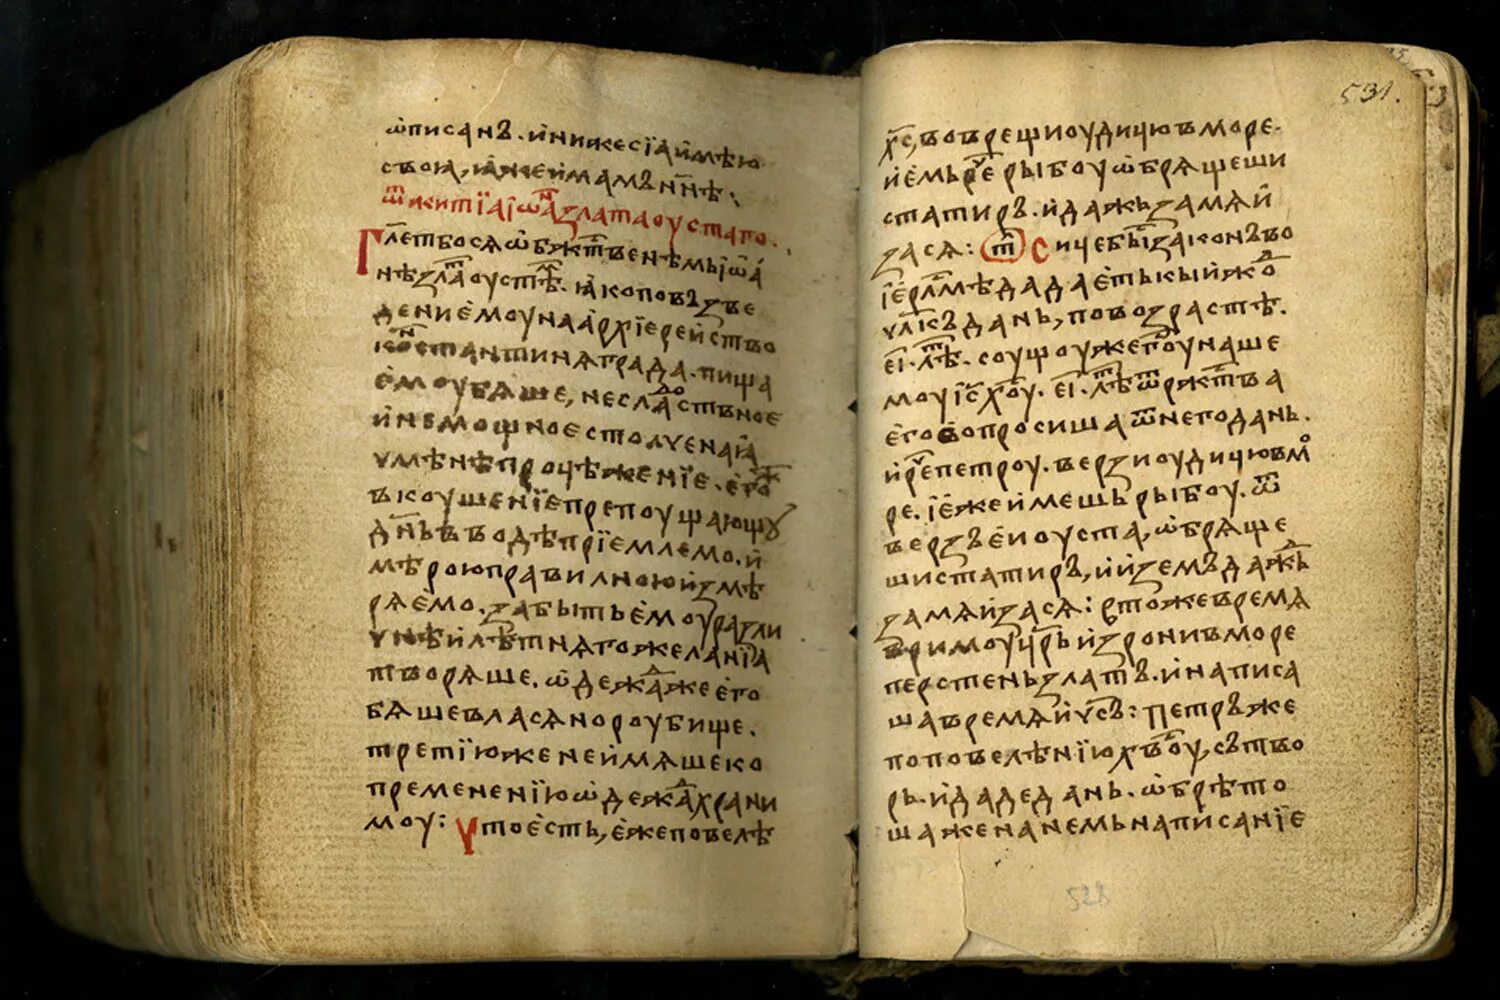 ѡписанъ. и҆нижесїаи҆мѣю
своѧ, ꙗ҆жеи҆мамъ нн҃ѣ:
ѿжитїаі҆ѡⷩ҇аꙁлатаоустаго.
Гл҃етбосѧѡбжⷭ҇твенѣмьі҆ѡⷶ
нѣꙁлаⷮоустѣⷨ. ꙗ҆коповъꙁве
денїе҆моунаа҆рхїерейство
коⷩ҇стантинѧграда. пища
е҆моубѧше, несладостьное
и҆нъмощноесотолченаѧ҆
ченѣпрочѣжѣнїе. е҆гоⷤ
вкоушенїепрепоущающꙋ
дн҃ьвъводѣпрїемлемо. и҆
мѣроюправилноюи҆ꙁмѣ
рѧе҆мо. ꙁабытье҆моураꙁли
чнѣи҆лѣтнѧгожеланїа
творѧше. ѡдежⷣажее҆го
бѧшевласѧнороубище.
третїюженеи҆мѧшеко
премененїюѡ҆дежⷣахрани
моу: Чтое҆сть, е҆жеповелѣ
531.
хс҃, воврещиоудичювъморе.
и҆е҆мьрⷱ҇ерыбоуѡ҆брѧщеши
статиръ. и҆дажьꙁамѧи҆
ꙁасѧ: т Сичебыⷭ҇ꙁаконъво
і҆е҆рⷭ҇лмѣдадаетькыйжⷣо
чл҃къдань, повоꙁрастѣ.
е҃і. лѣⷮ. соущоужегⷭ҇оунаше
моуі҆с҃хоⷭ҇у. е҃і. лѣⷮѿржⷭ҇тва
е҆говопросишаѿнегодань.
и҆рⷱ҇епетроу. верꙁиоудичювъмⷪ
ре. і҆е҆жеи҆мешьрыбоу. ѿ
верꙁъе҆иоуста, ѡбрѧще
шистатиръ, и҆и҆ꙁемъдажⷣь
ꙁамѧи҆ꙁасѧ: вто́жевремѧ
вримоуцр҃ьи҆ꙁронивъморе
перстеньꙁлатъ. и҆написа
шавремѧи҆чⷭ҇ъ: Петръже
поповелѣнїюхв҃оу, сътво
рь. и҆дадедань. ѡбрѣто
шаженанемьнаписанїе
528